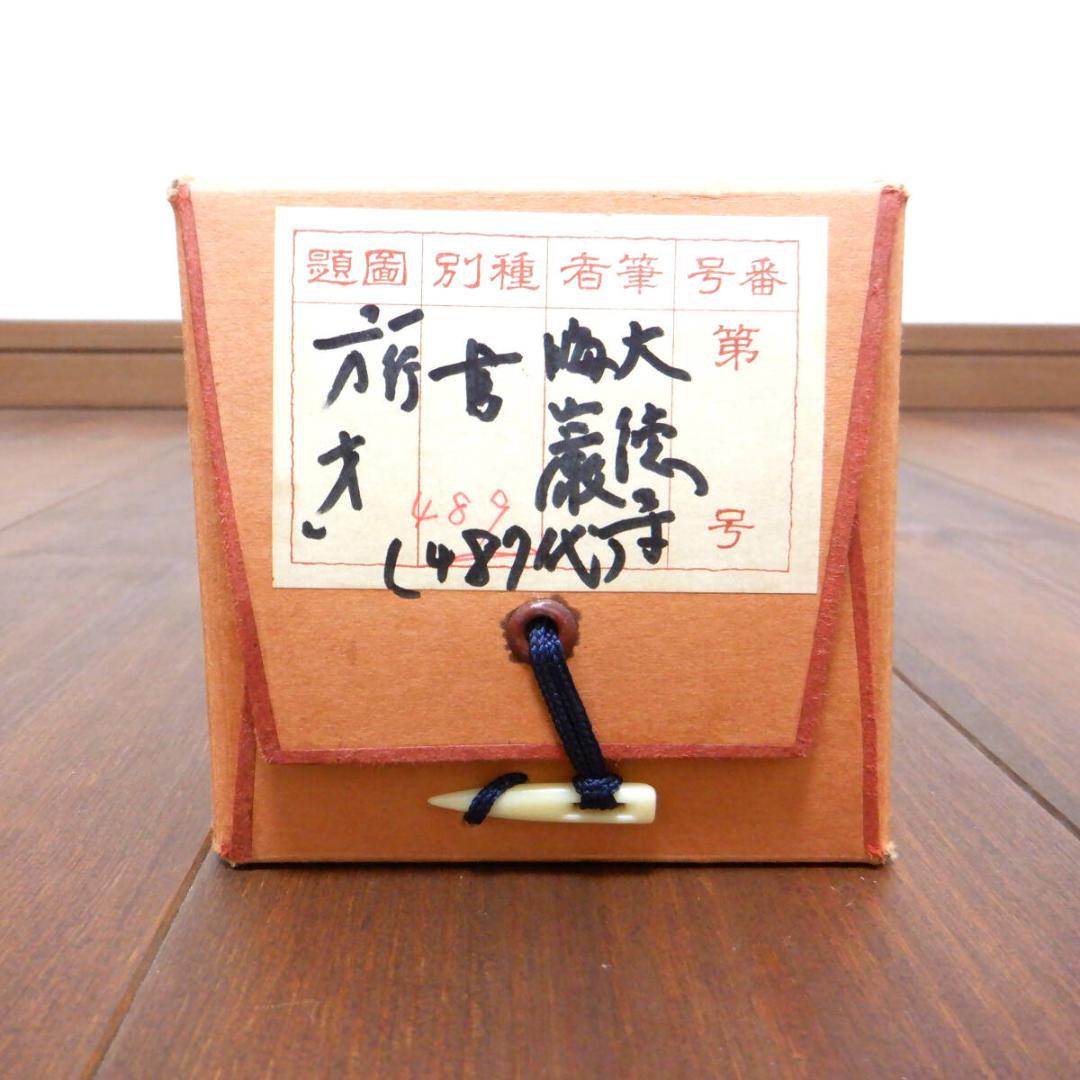 番号
第
号
筆者
大徳寺
海巌
(489代)
種別
書
489
圖題